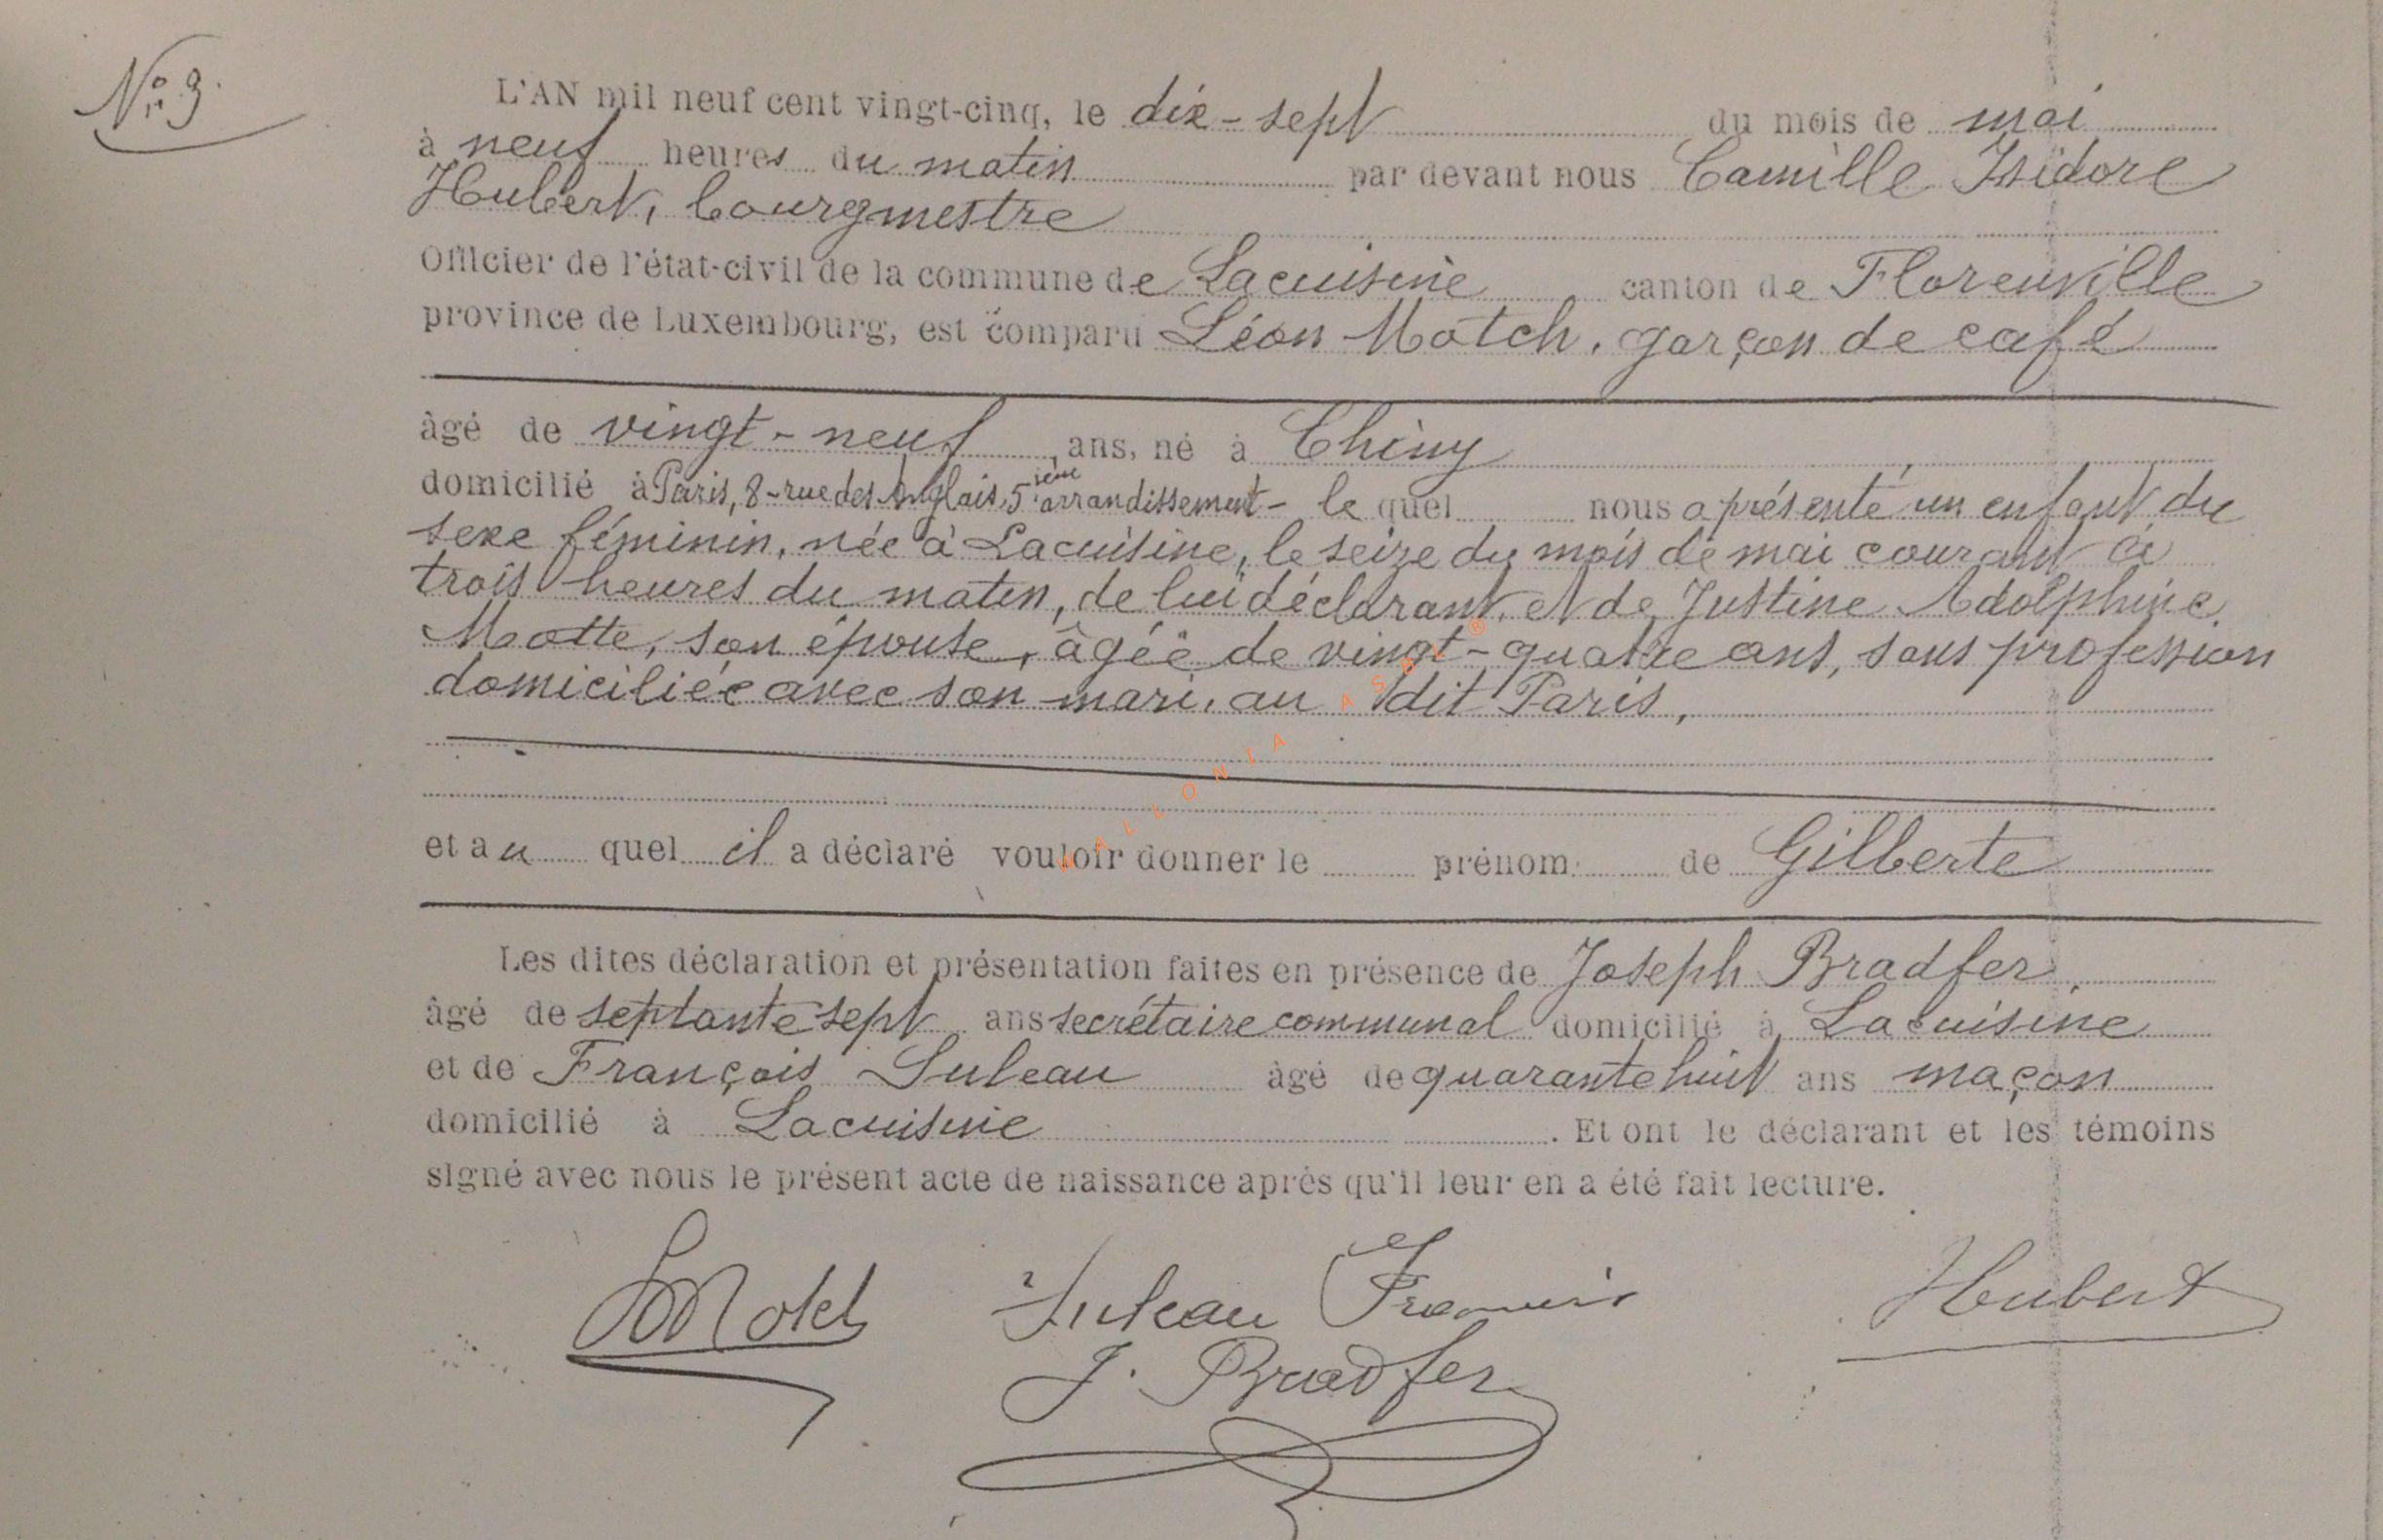 N° 9.
L'AN mil neuf cent vingt-cinq, le dix-sept du mois de mai
à neuf heures du matin par devant nous Camille Isidore
Hubert, bourgmestre
Officier de l'état-civil de la commune de Lacuisine canton de Florenville
province de Luxembourg, est comparu Léon Motch, garçon de café
âgé de vingt-neuf ans, né à Chiny
domicilié à Paris, 8-rue des Anglais, 5ième arrandissement - le quel nous a présenté un enfant du
sexe féminin, née à Lacuisine, le seize du mois de mai courant à
trois heures du matin, de lui déclarant et de Justine Adolphine
Motte, son épouse, âgée de vingt-quatre ans, sans profession
domiciliée avec son mari, au dit Paris,
WALLONIA ASBL ®
et au quel il a déclaré vouloir donner le prénom de Gilberte
Les dites déclaration et présentation faites en présence de Joseph Bradfer,
âgé de septante sept ans secrétaire communal domicilié à Lacuisine
et de François Suleau âgé de quarante huit ans maçon
domicilié à Lacuisine. Et ont le déclarant et les témoins
signé avec nous le présent acte de naissance après qu'il leur en a été fait lecture.
LMotch Suleau François Hubert
J. Bradfer